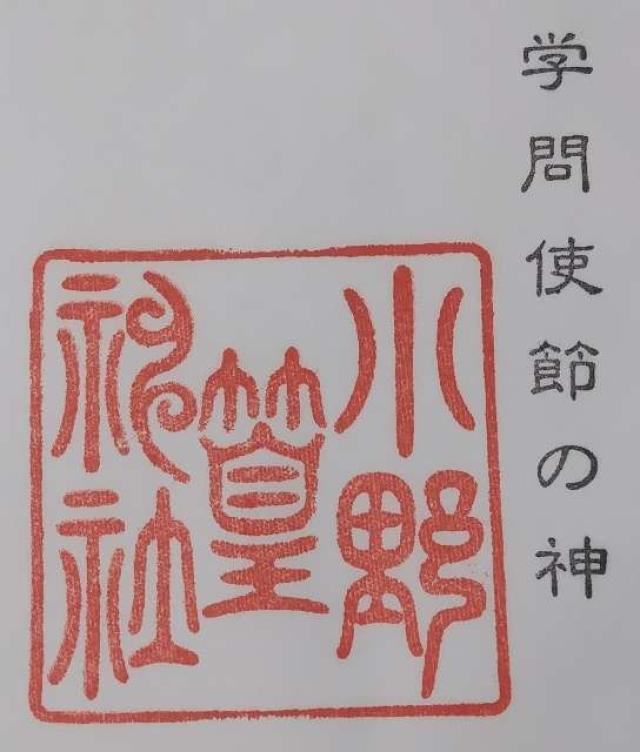 学問使節の神
小野
篁
神社